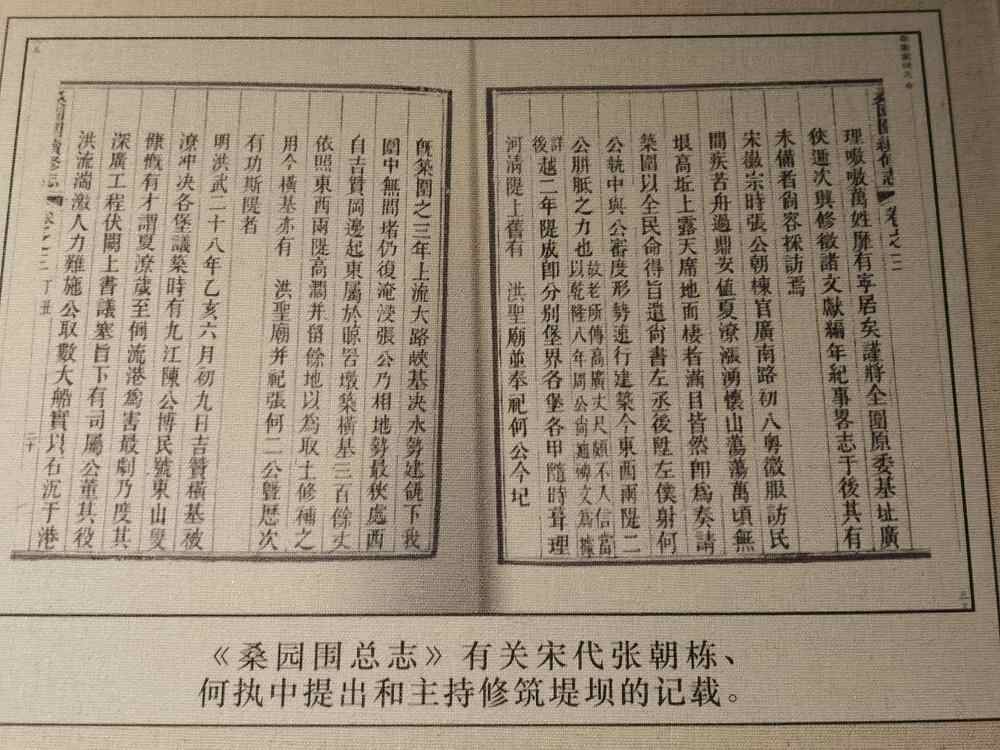 理嗷嗷萬姓靡有寧居矣謹將全圍原委基址廣
狹遞次興修徵諸文獻編年紀事畧志于後其有
未備者尚容採訪焉
宋徽宗時張公朝棟官廣南路初入粵微服訪民
間疾苦舟過鼎安值夏潦漲湧懷山蕩蕩萬頃無
垠高坵上露天席地而棲者滿目皆然卽為奏請
築圍以全民命得旨遣尚書左丞後陞左僕射何
公執中與公審度形勢遄行建築今東西兩隄二
公胼胝之力也 故老所傳高廣丈尺頗不入信當
以乾隆八年周公尚廸碑文為據
詳
後 越二年隄成卽分別堡界各堡各甲隨時葺理
河清隄上舊有 洪聖廟並奉祀何公今圮
旣築圍之三年上流大路峽基决水勢建瓴下我
圍中無間堵仍復淹浸張公乃相地勢最狹處西
自吉贊岡邊起東屬於晾罟墩築橫基三百餘丈
依照東西兩隄高濶并留餘地以為取土修補之
用今橫基亦有 洪聖廟并祀張何二公曁歷次
有功斯隄者
明洪武二十八年乙亥六月初九日吉贊橫基被
潦冲决各堡議築時有九江陳公博民號東山叟
慷慨有才謂夏潦歲至倒流港為害最劇乃度其
深廣工程伏闕上書議塞旨下有司屬公董其役
洪流湍激人力難施公取數大船實以石沉于港
卷之三 丁丑
二十
《桑园围总志》有关宋代张朝栋、
何执中提出和主持修筑堤坝的记载。